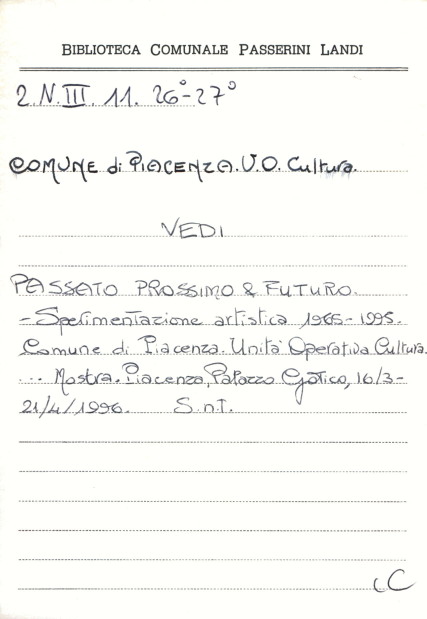 BIBLIOTECA COMUNALE PASSERINI LANDI
2.N.III. 11. 26°-27°
COMUNE di PIACENZA. U.O. Cultura.
VEDI
PASSATO PROSSIMO & FUTURO.
-Sperimentazione artistica 1965-1995.
Comune di Piacenza. Unità Operativa Cultura.
... Mostra. Piacenza, Palazzo Gotico, 16/3-
21/4/1996. S.n.T.